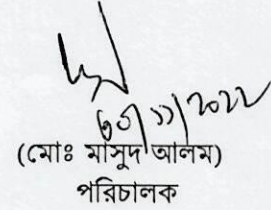 ৩০/১১/২০২২
(মোঃ মাসুদ আলম)
পরিচালক